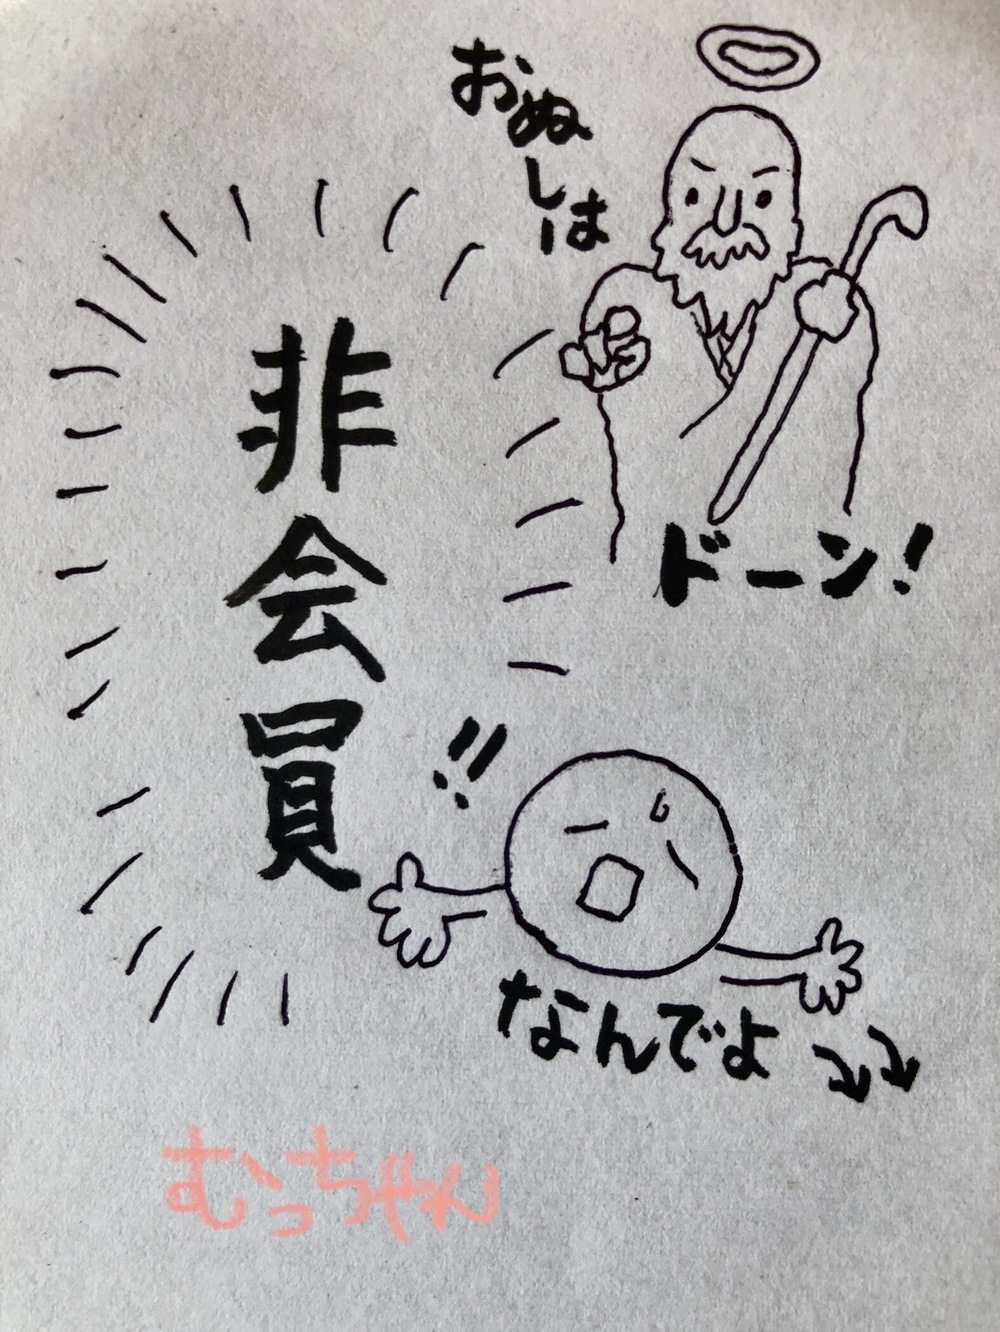 おぬしは
非会員
ドーン!
!!
なんでよ⤵⤵
むっちゃん